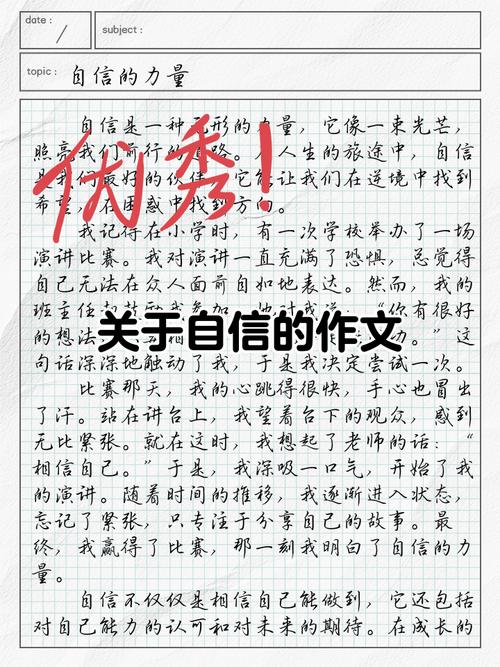 date :
subject :
topic : 自信的力量
自信是一种无形的力量，它像一束光芒，
照亮我们前行的道路。在人生的旅途中，自信
是我们最好的伙伴，它能让我们在逆境中找到
希望，在困惑中找到方向。
优秀！
我记得在小学时，有一次学校举办了一场
演讲比赛。我对演讲一直充满了恐惧，总觉得
自己无法在众人面前自如地表达。然而，我的
班主任却鼓励我参加，他对我说：“你有很好
的想法
关于自信的作文
。”这
句话深深地触动了我，于是我决定尝试一次。
比赛那天，我的心跳得很快，手心也冒出
了汗。站在讲台上，我望着台下的观众，感到
无比紧张。就在这时，我想起了老师的话：“
相信自己。”于是，我深吸一口气，开始了我
的演讲。随着时间的推移，我逐渐进入状态，
忘记了紧张，只专注于分享自己的故事。最
终，我赢得了比赛，那一刻我明白了自信的力
量。
自信不仅仅是相信自己能做到，它还包括
对自己能力的认可和对未来的期待。在成长的